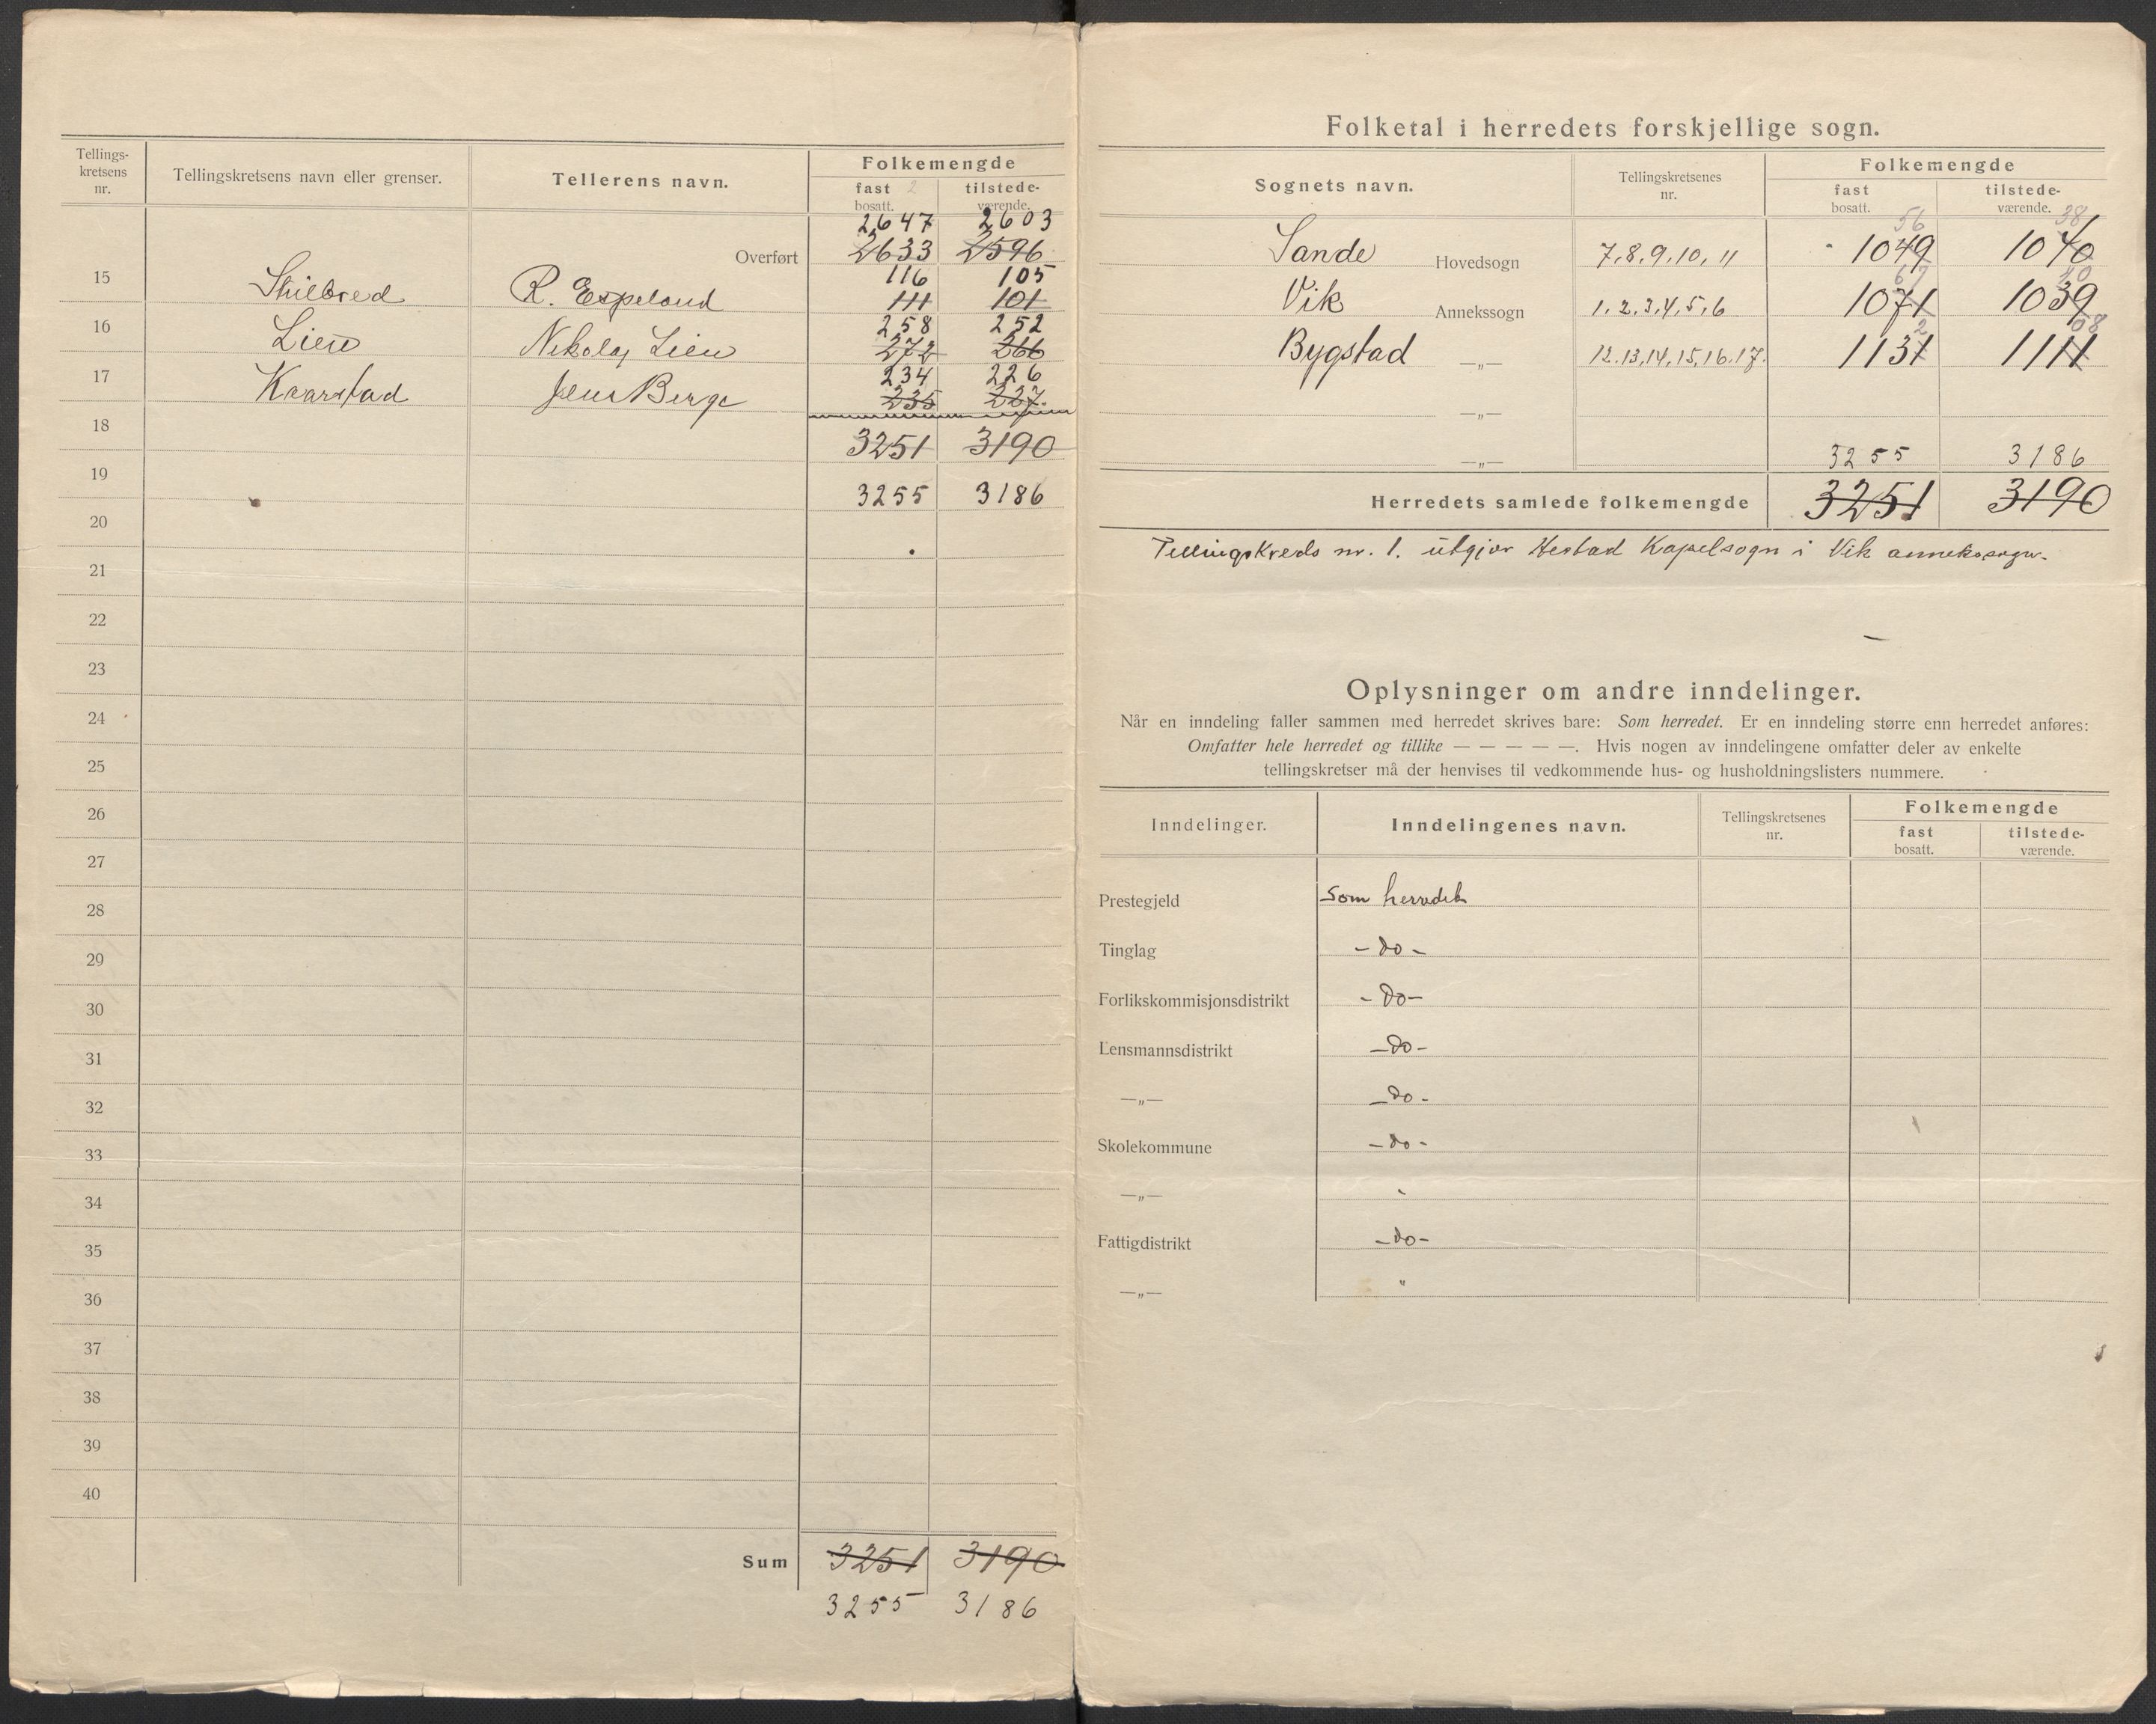 Tellings-
kretsens
nr.
Tellingskretsens navn eller grenser.
Tellerens navn.
Folkemengde
fast 2
bosatt.
tilstede-
værende.
2647 2603
Overført 2633 2596
116 105
15 Skilbred R. Espeland 111 101
258 252
16 Lien Nikolaj Lien 272 266
234 226
17 Kaarstad Jens Berge 235 227.
18 3251 3190
19 3255 3186
20
21
22
23
24
25
26
27
28
29
30
31
32
33
34
35
36
37
38
39
40
Sum 3251 3190
3255 3186
Folketal i herredets forskjellige sogn.
Sognets navn.
Tellingskretsenes
nr.
Folkemengde
fast
bosatt.
tilstede-
værende.
56 38
Sande Hovedsogn 7,8,9,10,11 1049 1040
67 40
Vik Annekssogn 1.2.3,4,5,6 1071 1039
2 08
Bygstad —„— 12.13,14,15,16.17. 1131 1111
—„—
—„— 3255 3186
Herredets samlede folkemengde 3251 3190
Tellingskreds nr. 1. utgjør Hestad Kapelsogn i Vik annekssogn.
Oplysninger om andre inndelinger.
Når en inndeling faller sammen med herredet skrives bare: Som herredet. Er en inndeling større enn herredet anføres:
Omfatter hele herredet og tillike — — — — —. Hvis nogen av inndelingene omfatter deler av enkelte
tellingskretser må der henvises til vedkommende hus- og husholdningslisters nummere.
Inndelinger.
Inndelingenes navn.
Tellingskretsenes
nr.
Folkemengde
fast
bosatt.
tilstede-
værende.
Prestegjeld Som herredet
Tinglag - do -
Forlikskommisjonsdistrikt - do -
Lensmannsdistrikt - do -
—„— - do -
Skolekommune - do -
—„—
Fattigdistrikt - do -
—„— "